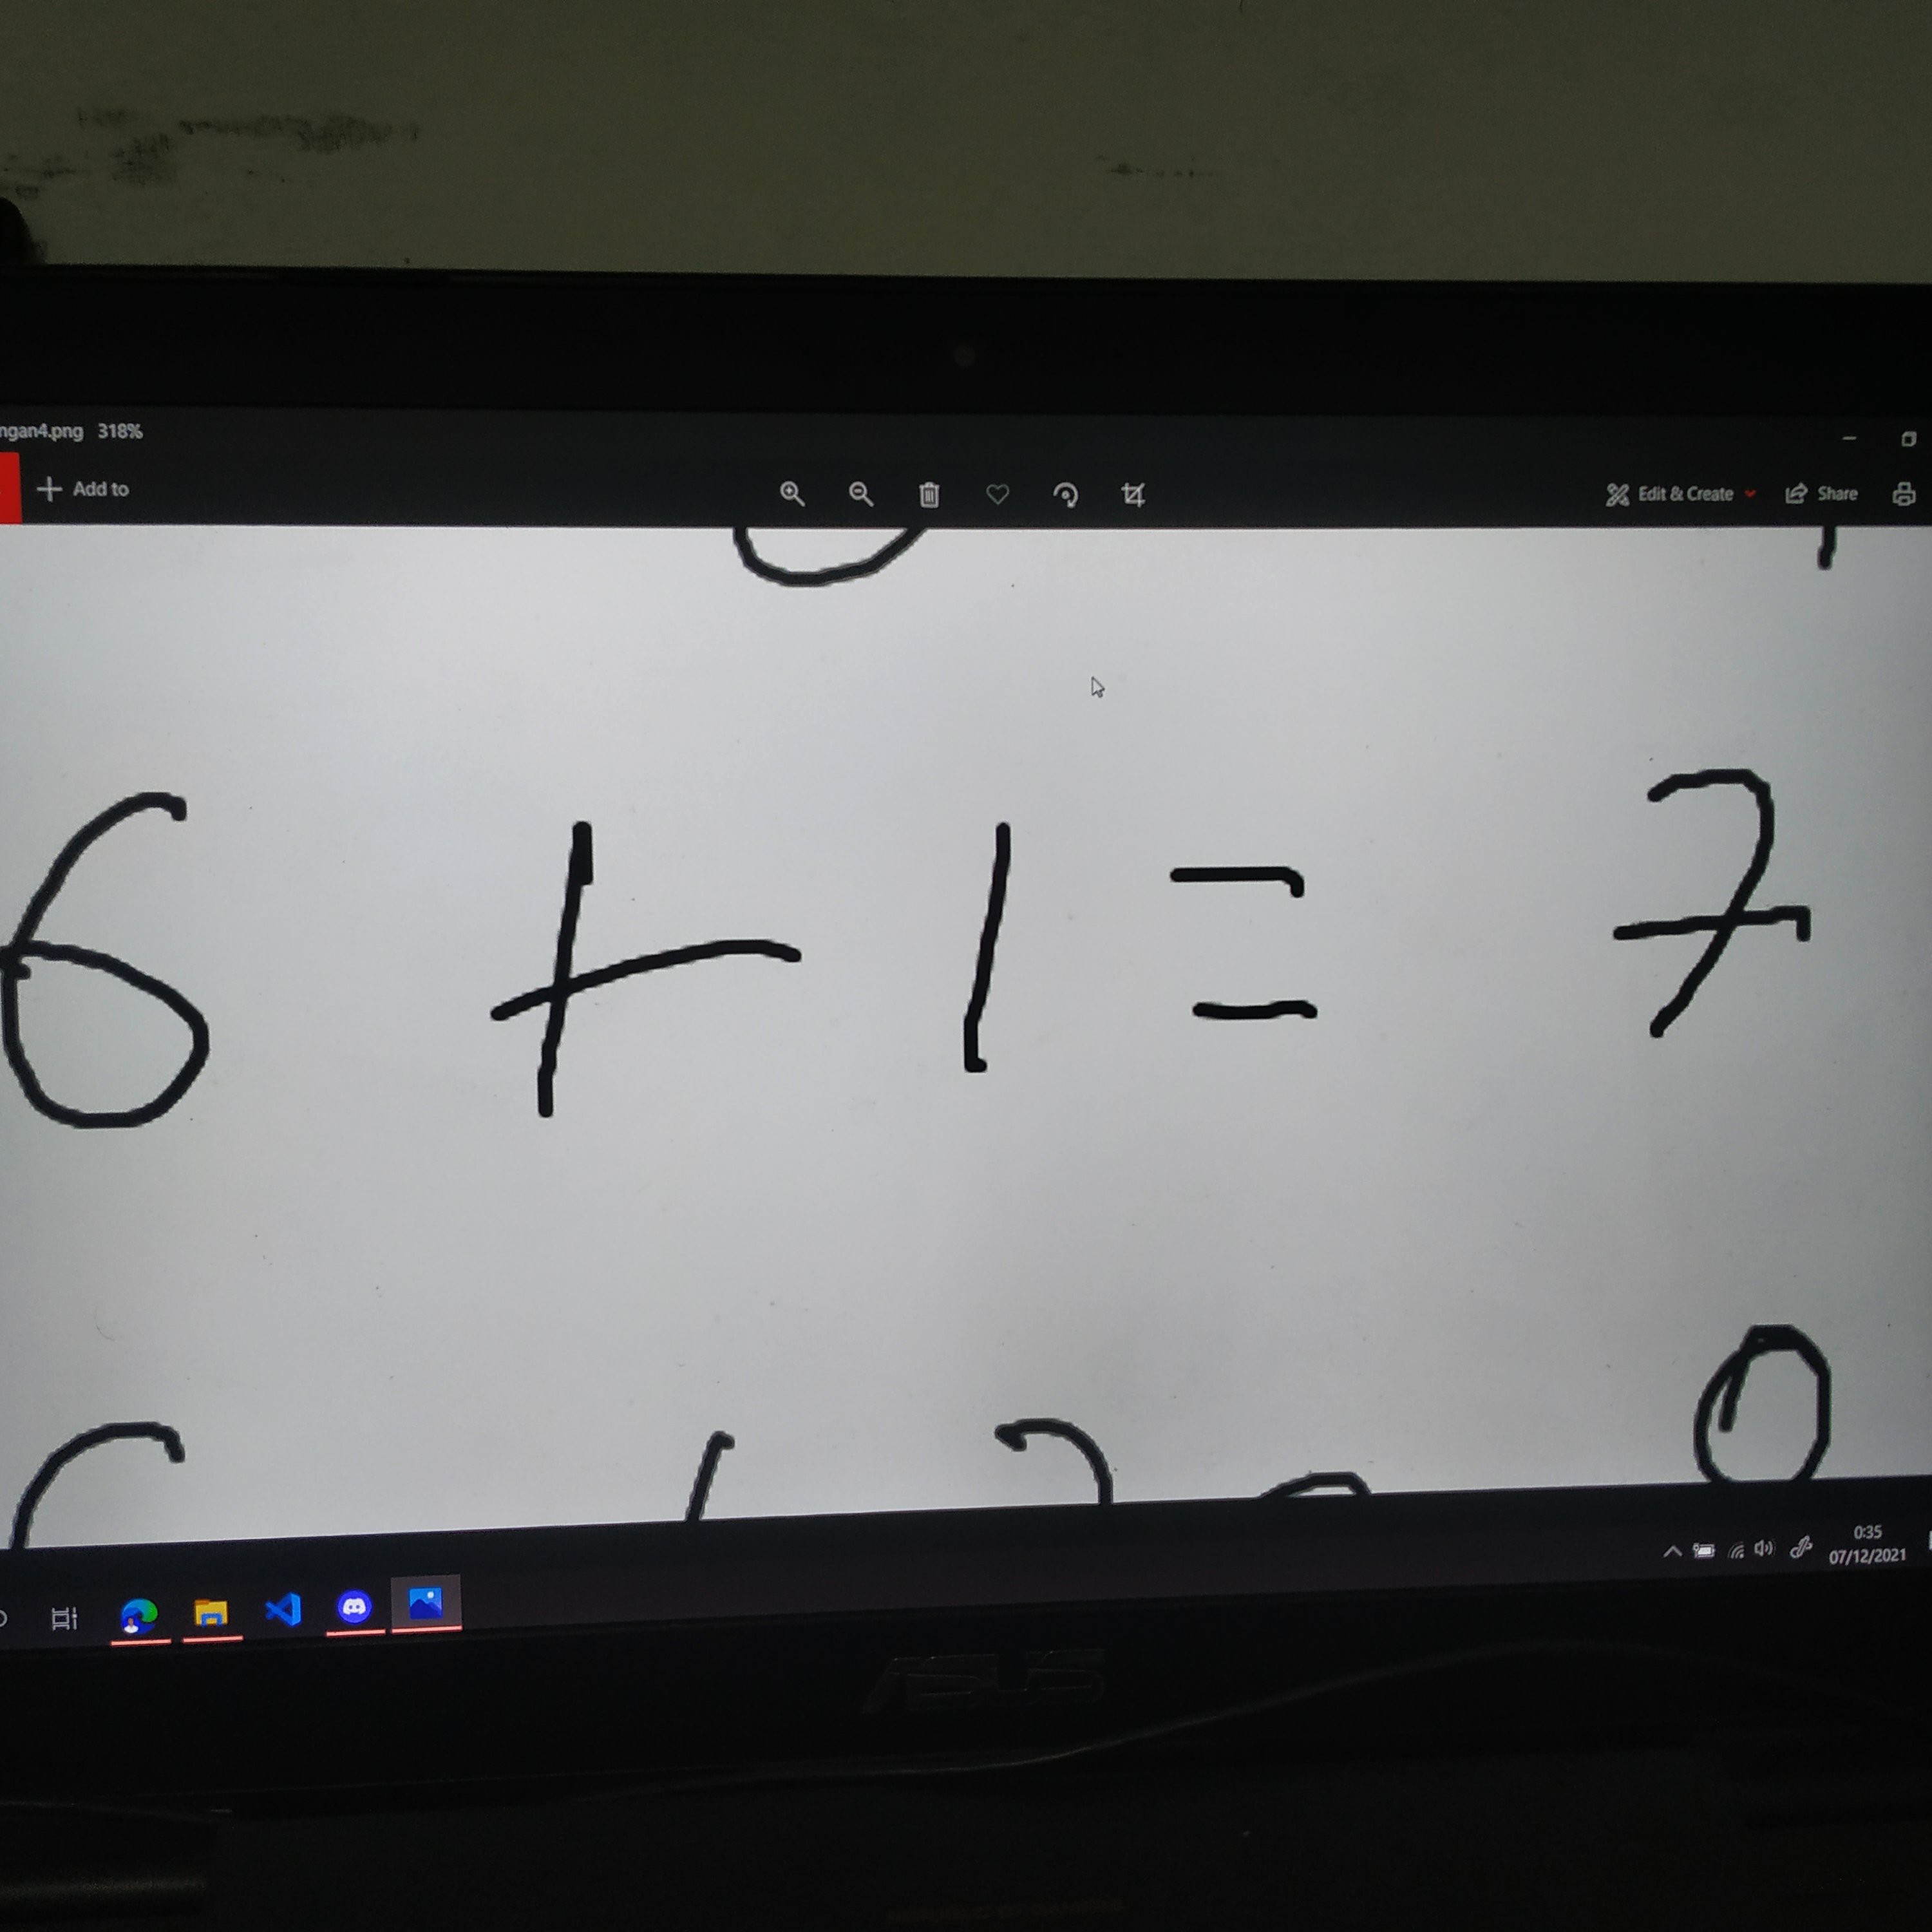 ngan4.png 318%
Add to Edit & Create Share
6 + 1 = 7
0:35
07/12/2021
ASUS